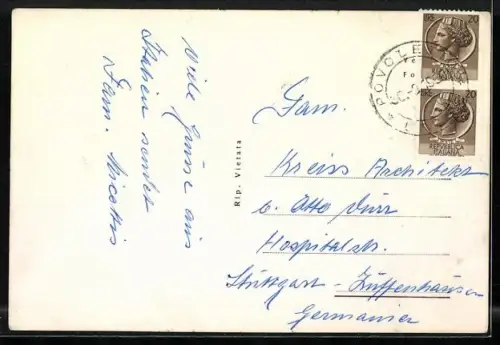 Viele Grüsse aus
Italien sendet
Fam.
Rip. Vietata
POVOLE
20
20
REPUBBLICA
ITALIANA
Fam.
Kreiss Architekt
b. Otto Dürr
Hospitalstr.
Stuttgart - Zuffenhausen
Germania